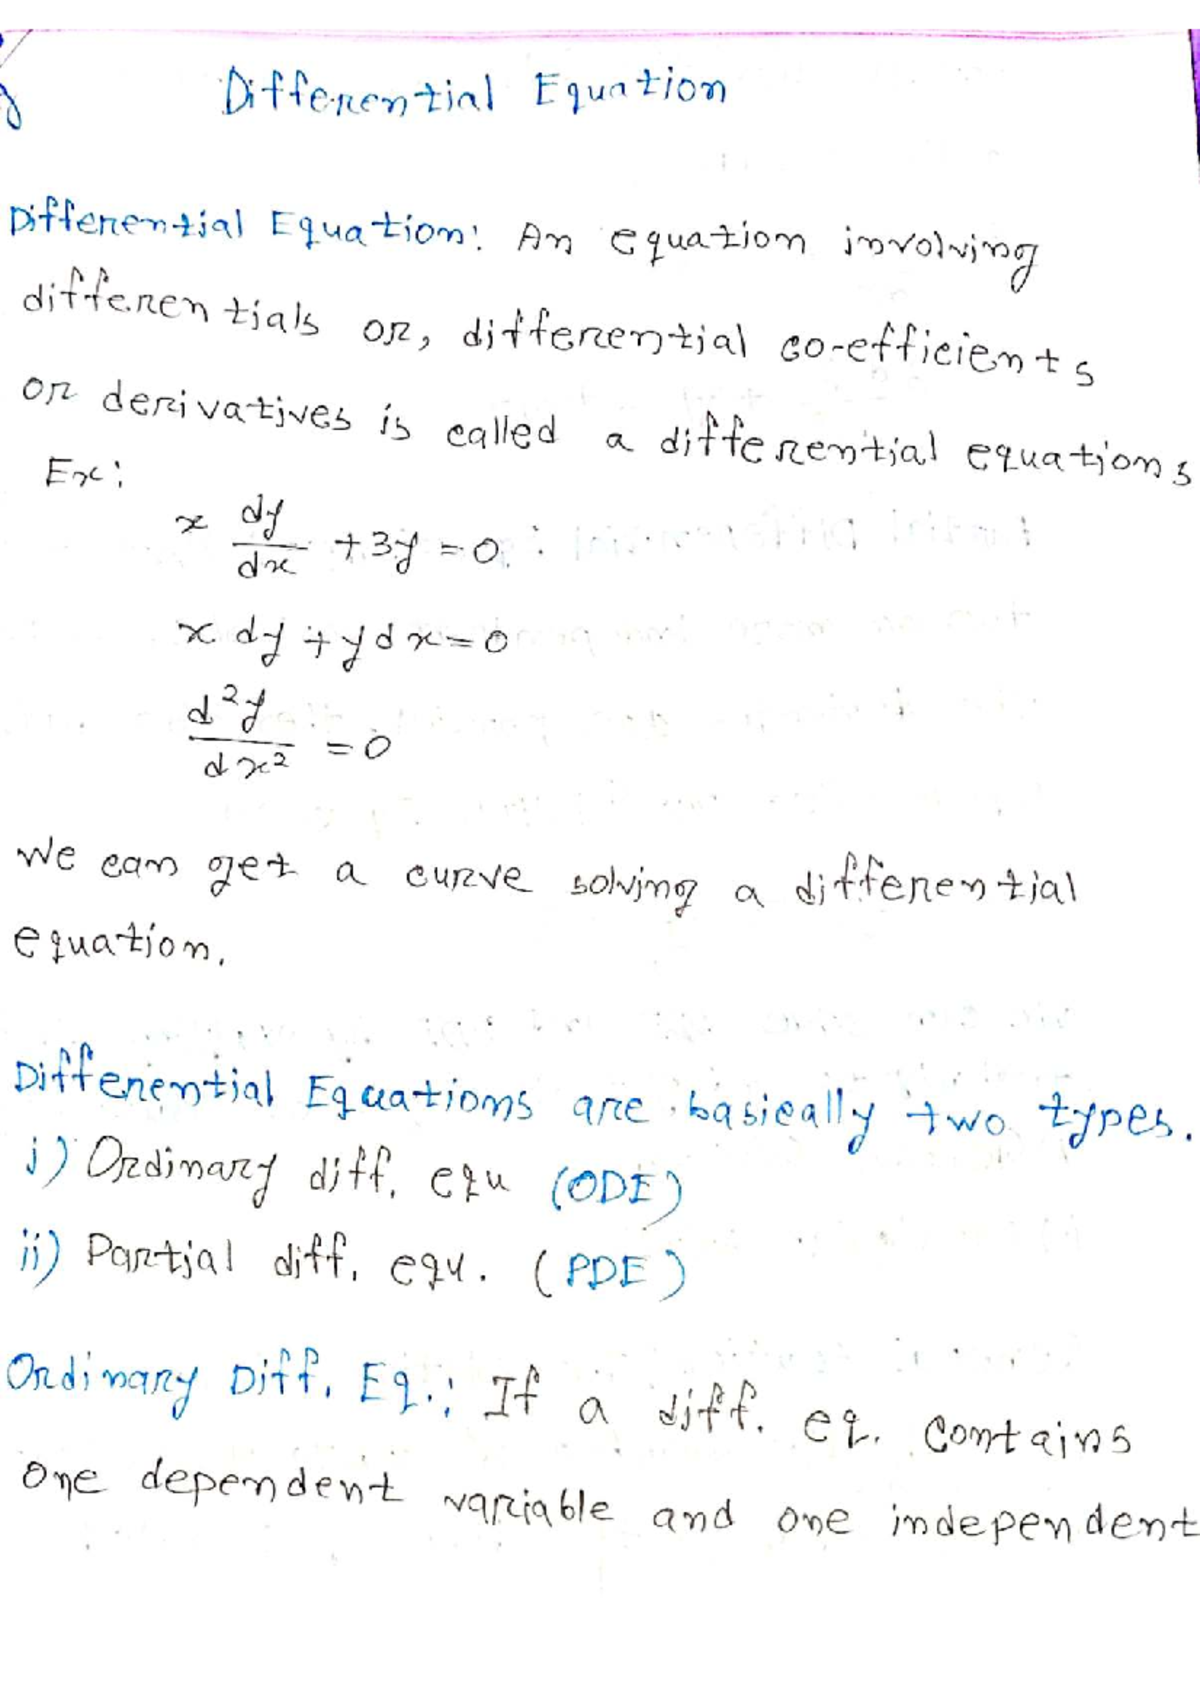 Differential Equation
Differential Equation: An equation involving
differentials or, differential co-efficients
or derivatives is called a differential equations
Ex:
x dy/dx + 3y = 0
x dy + y dx = 0
d²y/dx² = 0
We can get a curve solving a differential
equation.
Differential Equations are basically two types.
i) Ordinary diff. equ (ODE)
ii) Partial diff. equ. (PDE)
Ordinary Diff. Eq.: If a diff. eq. contains
one dependent variable and one independent